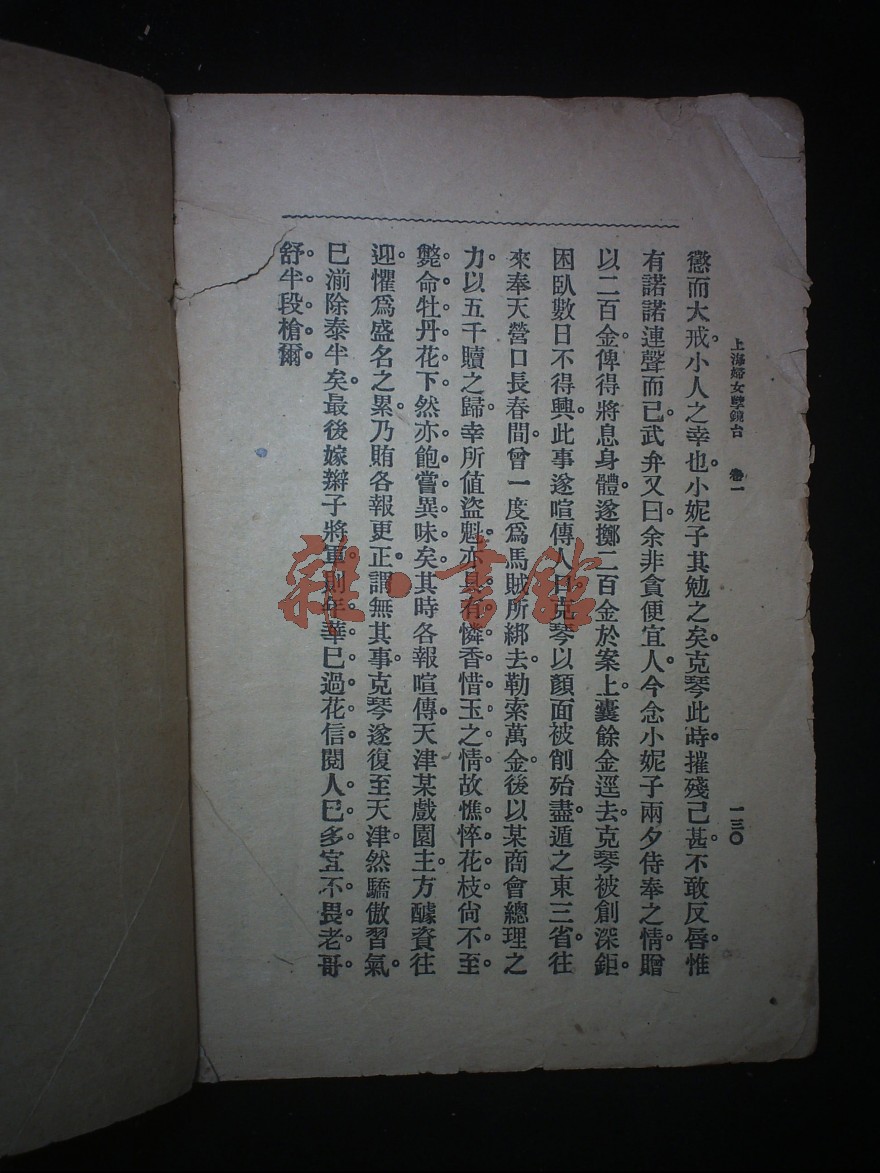 上海婦女孽鏡台　卷一　一三〇
懲而大戒。小人之幸也。小妮子其勉之矣。克琴此時。摧殘已甚。不敢反唇。惟
有諾諾連聲而已。武弁又曰。余非貪便宜人。今念小妮子兩夕侍奉之情。贈
以二百金。俾得將息身體。遂擲二百金於案上。囊餘金逕去。克琴被創深鉅。
困臥數日不得興。此事遂喧傳人口。克琴以顏面被削殆盡。遁之東三省。往
來奉天營口長春間。曾一度爲馬賊所綁去。勒索萬金。後以某商會總理之
力。以五千贖之歸。幸所値盜魁。亦具有憐香惜玉之情。故憔悴花枝。尙不至
斃命牡丹花下。然亦飽嘗異味矣。其時各報喧傳。天津某戲園主。方醵資往
迎。懼爲盛名之累。乃賄各報更正。謂無其事。克琴遂復至天津。然驕傲習氣。
已湔除泰半矣。最後嫁辮子將軍。則年華已過花信。閱人已多。宜不畏老哥。
舒半段槍爾。
雜·書館